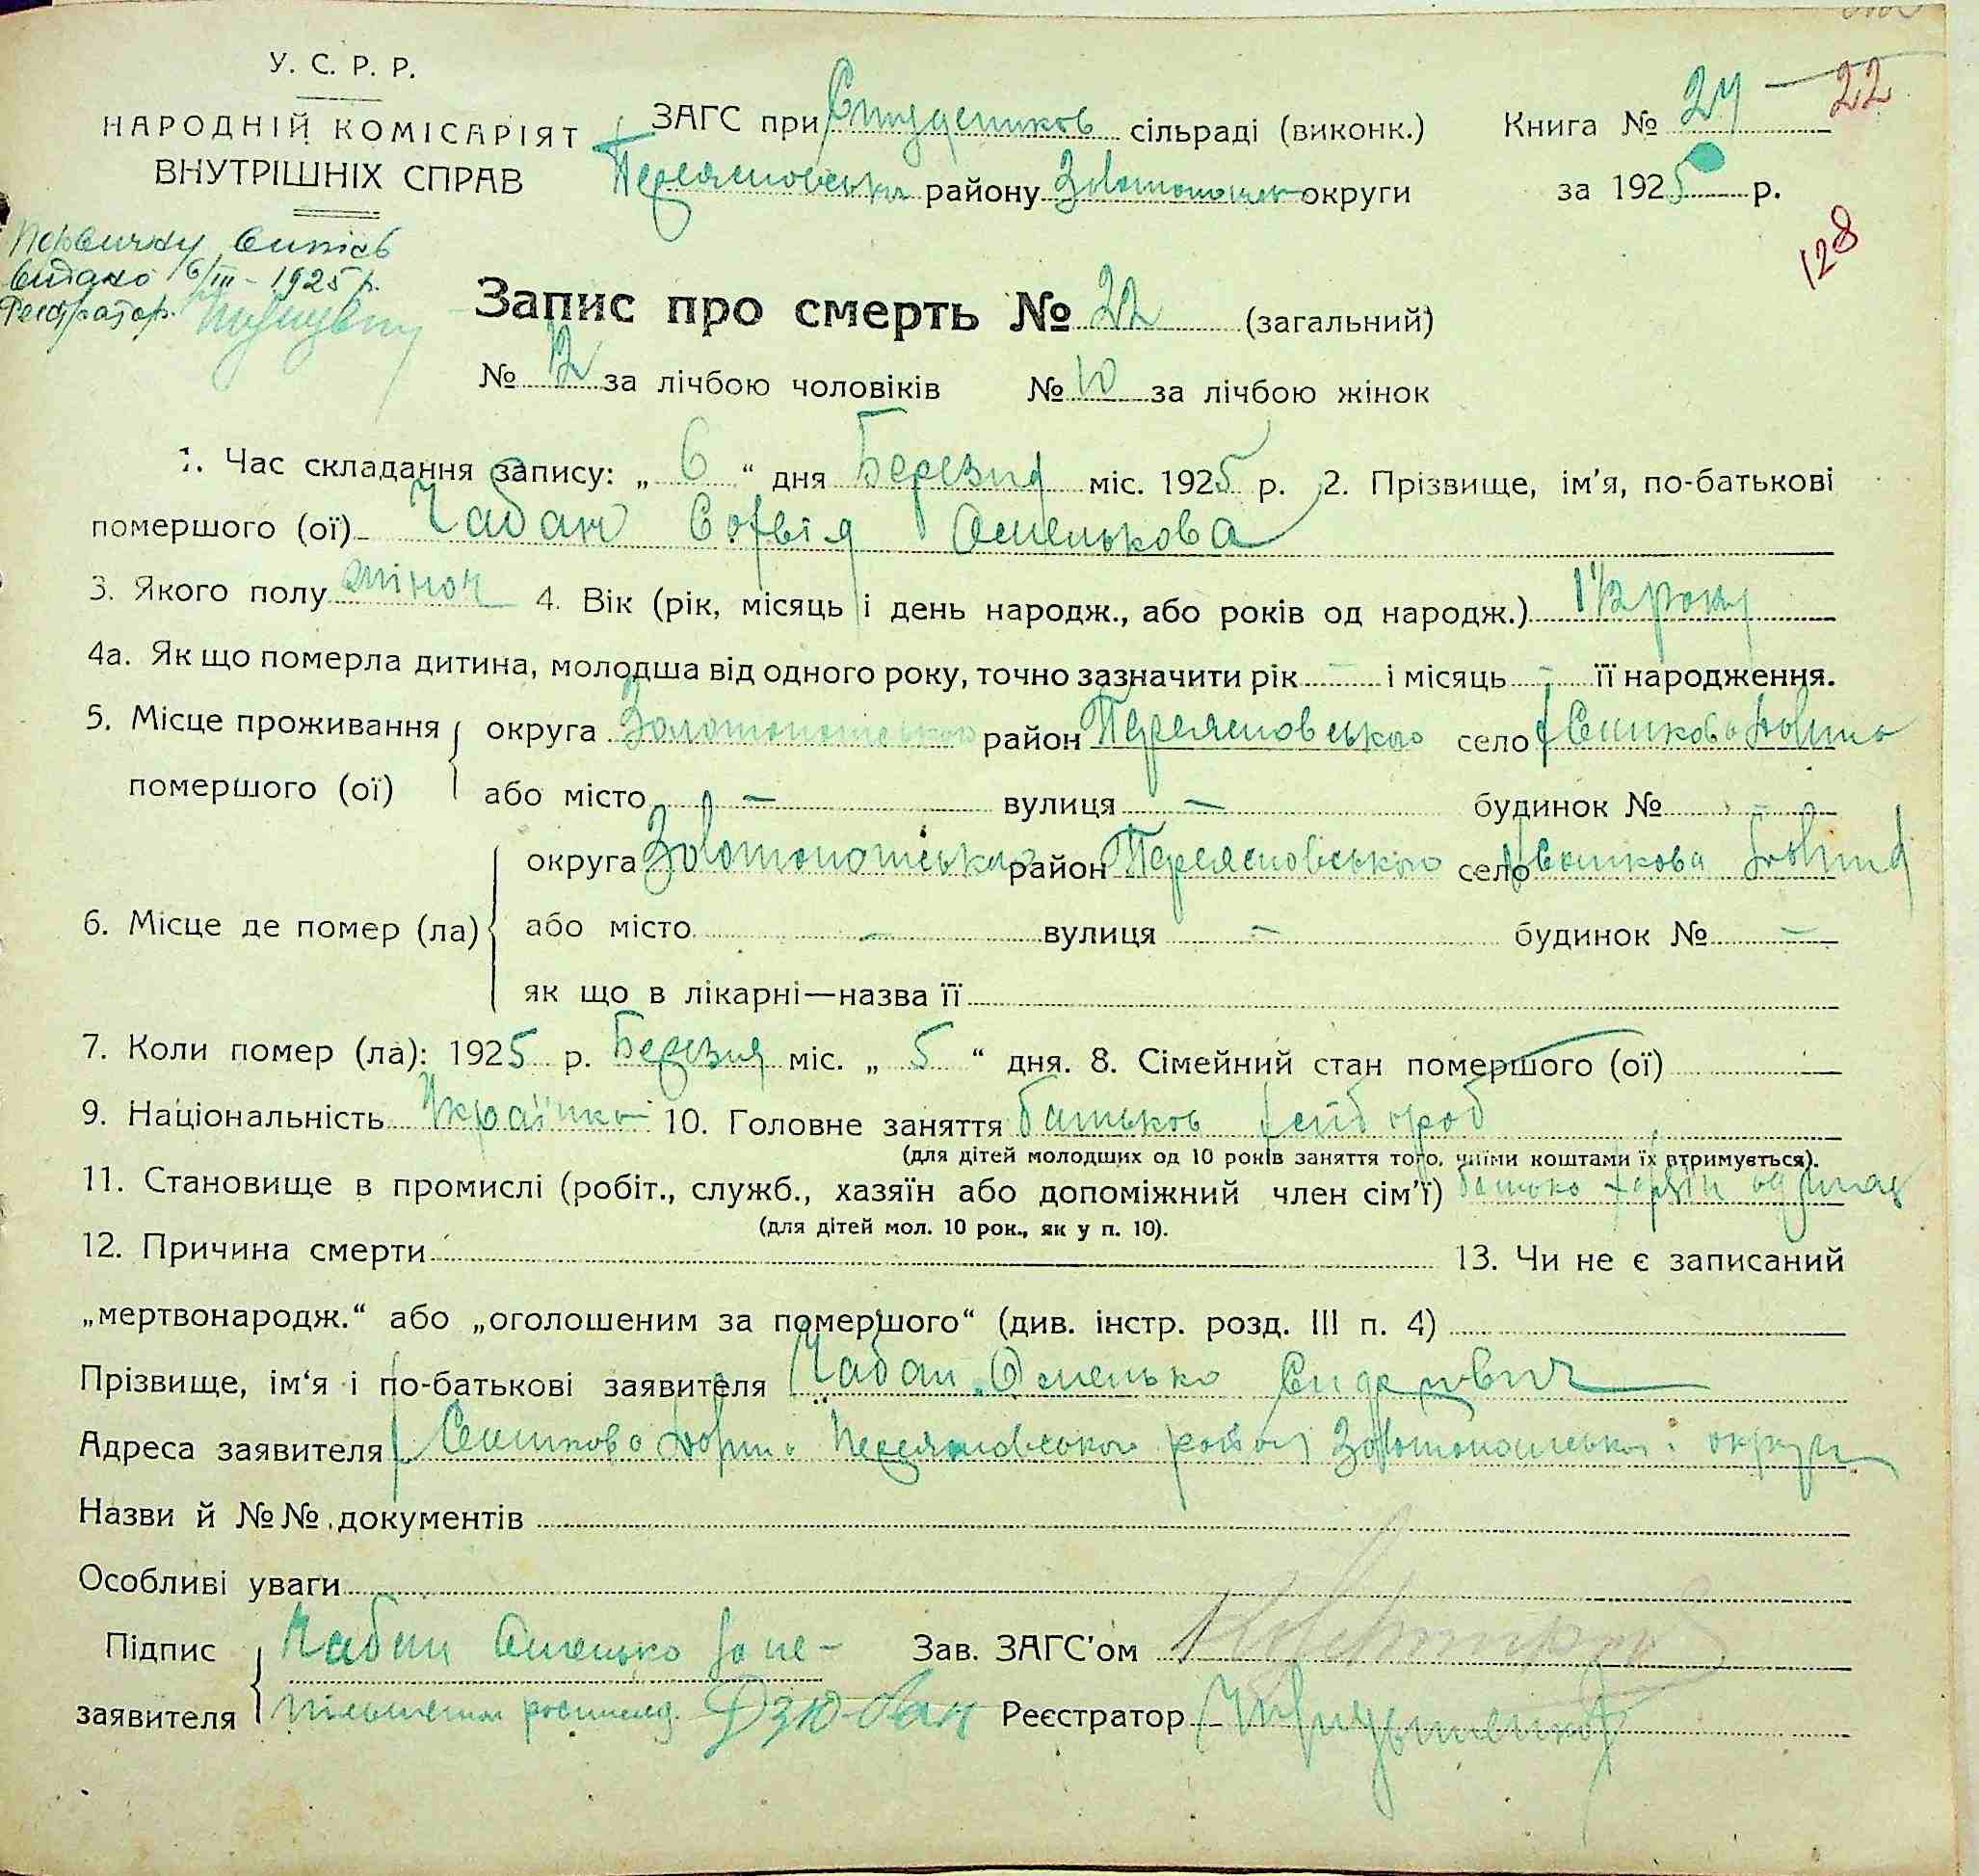 У. С. Р. Р.
НАРОДНІЙ КОМІСАРІЯТ
ВНУТРІШНІХ СПРАВ
ЗАГС при Студеников сільраді (виконк.)
Переясловська району Золотонош округи
Книга № 24 – 22
за 1925 р.
128
Первичну випись
видано 6/III – 1925 р.
Реєстратор.
Запис про смерть № 22 (загальний)
№ 12 за лічбою чоловіків № 10 за лічбою жінок
1. Час складання запису: „ 6 “ дня Березня міс. 1925 р. 2. Прізвище, ім’я, по-батькові
помершого (ої) Чабан Софвія Омелькова
3. Якого полу жіноч 4. Вік (рік, місяць і день народж., або років од народж.) 1 1/2 року
4а. Як що померла дитина, молодша від одного року, точно зазначити рік – і місяць – її народження.
5. Місце проживання округа Золотоношського район Переясловського село
помершого (ої) або місто – вулиця – будинок № –
6. Місце де помер (ла) округа Золотоношського район Переясловського село
або місто – вулиця – будинок № –
як що в лікарні—назва її
7. Коли помер (ла): 1925 р. Березня міс. „ 5 “ дня. 8. Сімейний стан помершого (ої)
9. Національність Українка 10. Головне заняття батьков хлібороб
(для дітей молодших од 10 років заняття того, чиїми коштами їх втримується).
11. Становище в промислі (робіт., служб., хазяїн або допоміжний член сім’ї) батько хазяїн
(для дітей мол. 10 рок., як у п. 10).
12. Причина смерти 13. Чи не є записаний
„мертвонародж.“ або „оголошеним за помершого“ (див. інстр. розд. III п. 4)
Прізвище, ім‘я і по-батькові заявителя Чабан Омелько Сидорович
Адреса заявителя Переясловського району Золотоношської округи
Назви й №№ документів
Особливі уваги
Підпис Чабан Омелько за не- Зав. ЗАГС’ом
заявителя Дзюбан Реєстратор